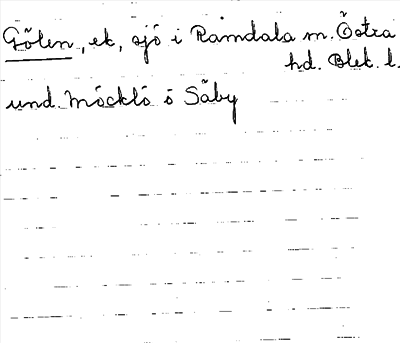 Gölen, ek, sjö i Ramdala sn. Östra
hd. Blek. l.
und. Möcklö o Säby